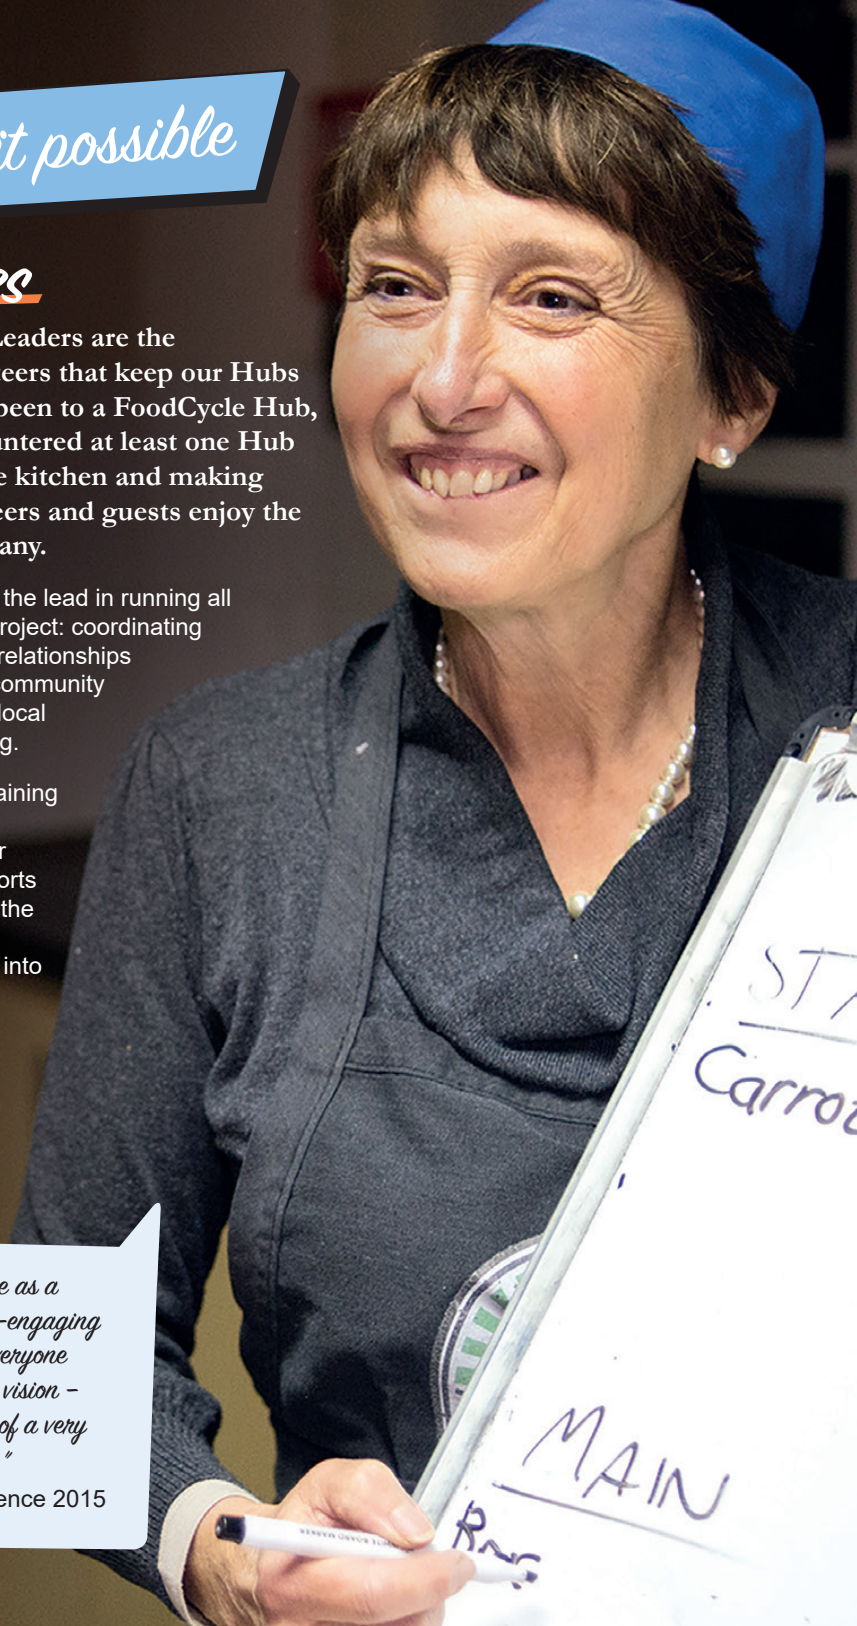 it possible
Leaders are the
teers that keep our Hubs
been to a FoodCycle Hub,
untered at least one Hub
e kitchen and making
eers and guests enjoy the
any.
the lead in running all
roject: coordinating
relationships
ommunity
local
g.
aining
r
orts
the
into
STA
Carrot
e as a
-engaging
veryone
vision –
of a very
"
ence 2015
MAIN
WHITE BOARD MARKER